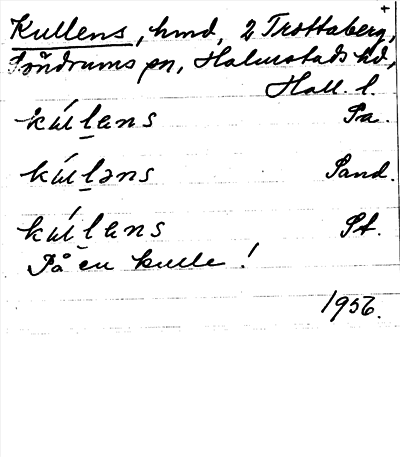 Kullens, hmd, 2 Trottaberg,
Söndrums sn, Halmstads hd,
Hall. l.
kúllans Pa.
kúlləns Sand.
kúllans St.
På en kulle!
1956.